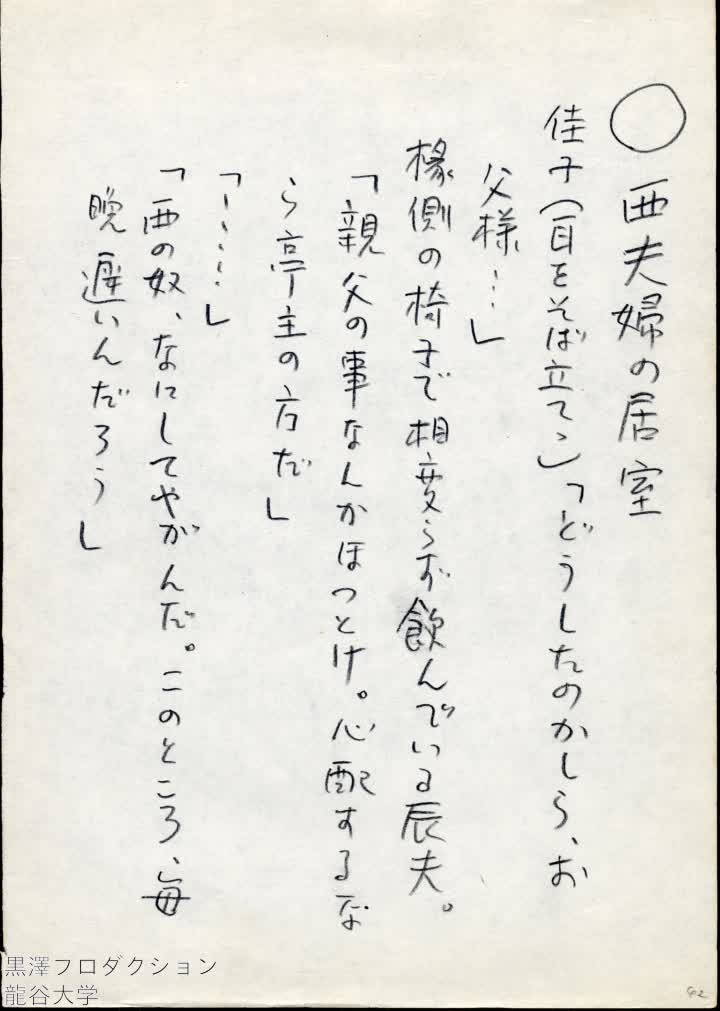 ○ 西夫婦の居室
佳子(目をそば立てゝ)「どうしたのかしら、お
父様…」
椽側の椅子で相変らず飲んでいる辰夫。
「親父の事なんかほつとけ。心配するな
ら亭主の方だ」
「…‥」
「西の奴、なにしてやがんだ。このところ、毎
晩遅いんだろう」
黒澤プロダクション
龍谷大学
42